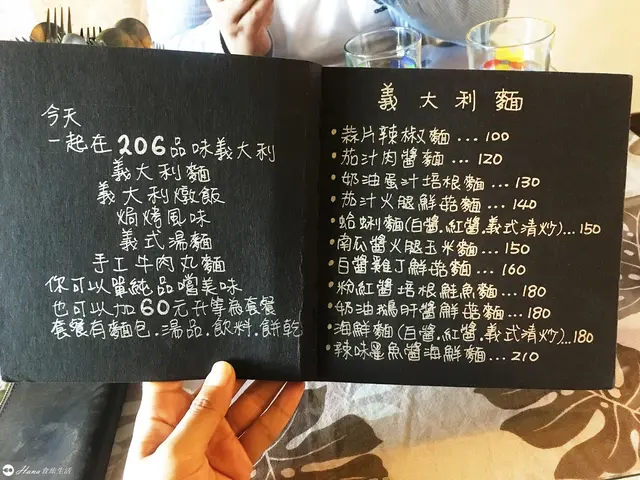 今天
一起在206品味義大利
義大利麵
義大利燉飯
焗烤風味
義式湯麵
手工牛肉丸麵
你可以單純品嚐美味
也可以加60元升等為套餐
套餐有麵包.湯品.飲料.餅乾
義大利麵
•蒜片辣椒麵...100
•茄汁肉醬麵...120
•奶油蛋汁培根麵...130
•茄汁火腿鮮菇麵...140
•蛤蜊麵(白醬.紅醬.義式清炒)...150
•南瓜醬火腿玉米麵...150
•白醬雞丁鮮菇麵...160
•粉紅醬培根鮭魚麵...180
•奶油鵝肝醬鮮菇麵...180
•海鮮麵(白醬.紅醬.義式清炒)...180
•辣味墨魚醬海鮮麵...210
Hana食旅生活